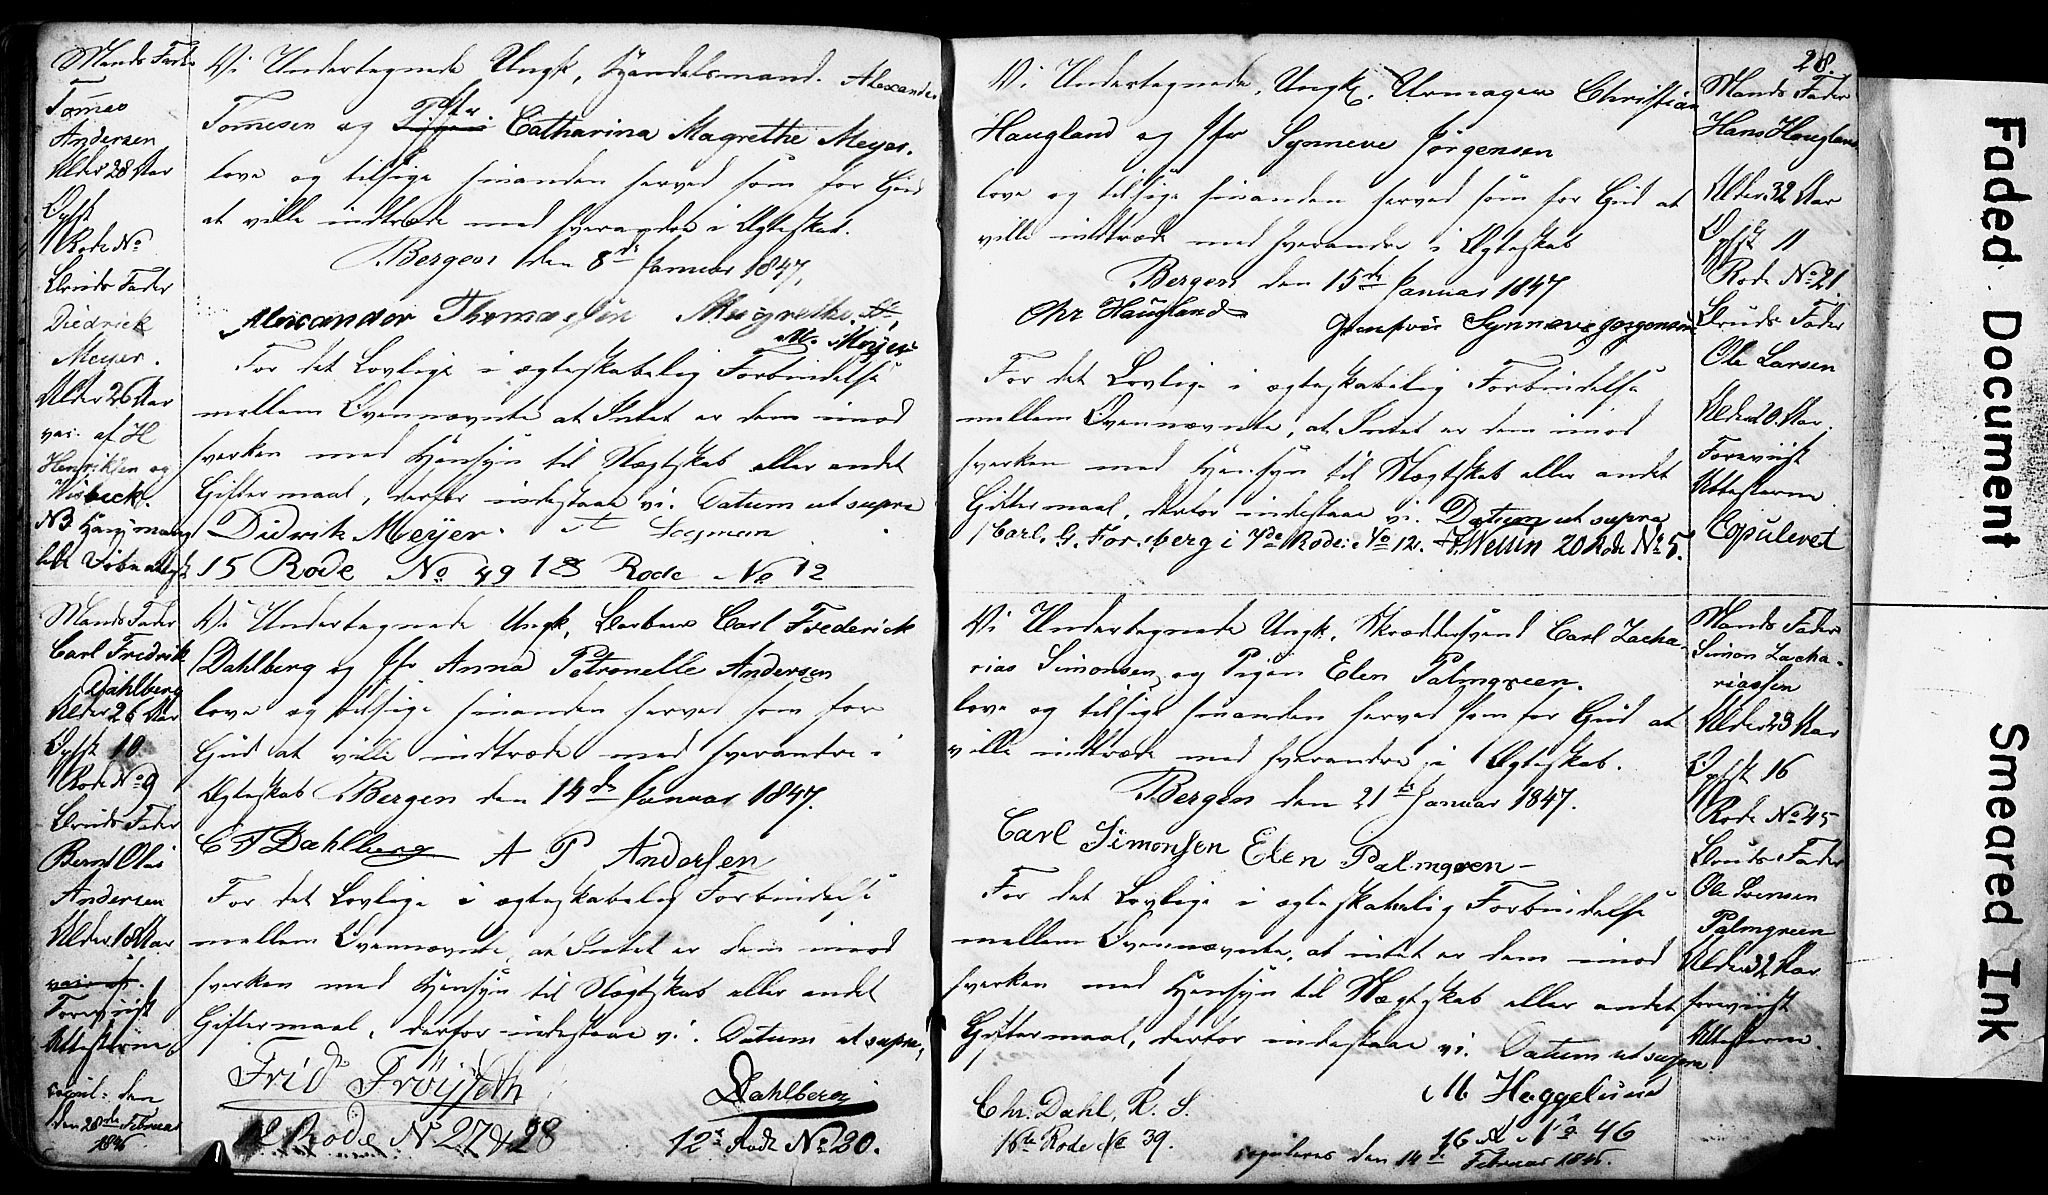 Mands Fader
Tomes
Andersen
Alder 28 Aar
Opsk
Rode No
Bruds Fader
Diedrick
Meyer.
Alder 26 Aar
vac. af H
Henriksen og
Wisbeck.
Vi Undertegnede Ungk, Handelsmand. Alexander
Tomesen og Jfr Catharina Magrethe Meyer.
love og tilsige hinanden herved som for Gud
at ville indtræde med hverandre i Ægteskab.
Bergen den 8de Januar 1847,
Alexander Thomassen Magrethe
M. Meyer
For det Lovlige i ægteskabelig Forbindelse
mellem Ovennævnte at Intet er dem imod
hverken med Hensyn til Slægtskab eller andet
Giftermaal, derfor indestaae vi. Datum ut supra
Didrik Meyer.
15 Rode No 49 18 Rode No 12
Mands Fader
Carl Fredrik
Dahlberg
Alder 26 Aar
Opsk 10
Rode No 9
Bruds Fader
Bernt Olai
Andersen
Alder 18 Aar
vac. af.
Foreviist
Attesterne
copul: den
den 28de Februar
1846
Vi Undertegnede Ungk, Barber Carl Frederick
Dahlberg og Jfr Anna Petronelle Andersen
love og tilsige hinanden herved som for
Gud at ville indtræde med hverandre i
Ægteskab Bergen den 14de Januar 1847.
C F Dahlberg A P Andersen
For det Lovlige i ægteskabelig Forbindelse
mellem Ovennævnte, at Intet er dem imod
hverken med Hensyn til Slægtskab eller andet
Giftermaal, derfor indestaae vi. Datum ut supra,
Frid Fröyseth Dahlberg
Rode No 27 & 28 12te Rode No 30.
28.
Vi Undertegnede, Ungk. Urmager Christian
Haugland og Jfr Synneve Jørgensen
love og tilsige hinanden herved som for Gud at
ville indtræde med hverandre i Ægteskab
Bergen den 15de Januar 1847
Chr Haugland Synneve Jørgensen
For det Lovlige i ægteskabelig Forbindelse
mellem Ovennævnte, at Intet er dem imod
hverken med Hensyn til Slægtskab eller andet
Giftermaal, derfor indestaae vi. Datum ut supra
Carl. G. Forsberg i 7de Rode No 12. Wellin 20 Rode No 5.
Mands Fader
Hans Haugland
Alder 32 Aar
Opsk 11
Rode No 21
Bruds Fader
Ole Larsen
Alder 20 Aar.
Foreviist
Attesterne
Copuleret
Vi Undertegnede Ungk. Skræddersvend Carl Zacha-
rias Simonsen og Pigen Elen Palmgreen.
love og tilsige hinanden herved som for Gud at
ville indtræde med hverandre i Ægteskab.
Bergen den 21de Januar 1847.
Carl Simonsen Elen Palmgreen
For det Lovlige i ægteskabelig Forbindelse
mellem Ovennævnte, at intet er dem imod
hverken med Hensyn til Slægtskab eller andet
Giftermaal, derfor indestaae vi. Datum ut supra
Chr. Dahl, R. S. M Haggelund
16de Rode No 39. 16 R No 46
copuleres den 14de Februar 1846.
Mands Fader
Simon Zacha-
riassen
Alder 23 Aar
Opsk 16
Rode No 45
Bruds Fader
Ole Svensen
Palmgreen
Alder 32 Aar
foreviist
Attesterne.
Faded Document
Smeared Ink